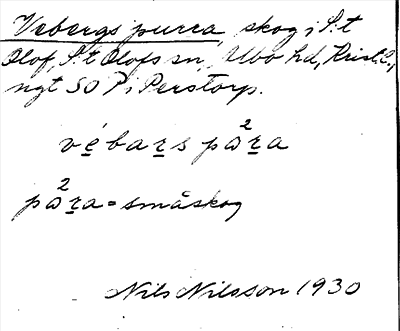 Vebergs purra, skog i S:t
Olof, S:t Olofs sn, Albo hd, Krist. l.,
ngt SO P i Perstorp.
vébaṟs pω²ṟa
pω²ṟa = småskog
Nils Nilsson 1930